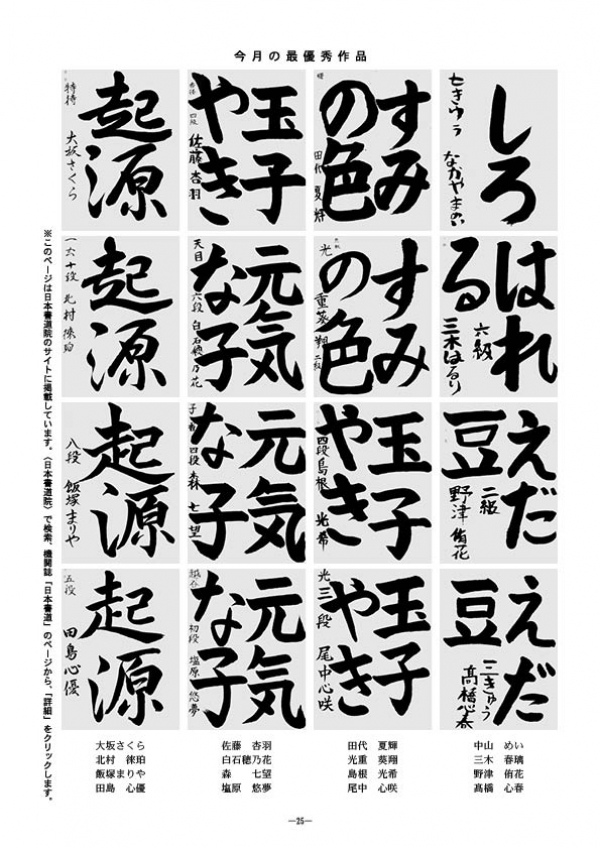 今月の最優秀作品
しろ
七きゅう なかやまめい
すみ
の色
田代夏輝
玉子
やき
四段 佐藤杏羽
起源
特待 大坂さくら
はれ
る
六級 三木はるり
すみ
の色
光重葵翔 二級
元気
な子
天目 六段 白石穂乃花
起源
六十段 北村徠珀
えだ
豆
二級 野津侑花
玉子
やき
四段 島根光希
元気
な子
四段 森七望
起源
八段 飯塚まりや
えだ
豆
三きゅう 髙橋心春
玉子
やき
光 三段 尾中心咲
元気
な子
初段 塩原悠夢
起源
五段 田島心優
※このページは日本書道院のサイトに掲載しています。〈日本書道院〉で検索、機関誌「日本書道」のページから、「詳細」をクリックします。
大坂さくら 佐藤 杏羽 田代 夏輝 中山 めい
北村 徠珀 白石穂乃花 光重 葵翔 三木 春璃
飯塚まりや 森 七望 島根 光希 野津 侑花
田島 心優 塩原 悠夢 尾中 心咲 髙橋 心春
—25—